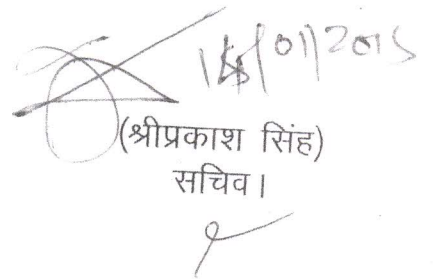 14/01/2015
(श्रीप्रकाश सिंह)
सचिव।